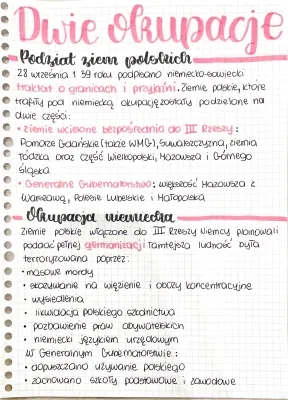 Dwie okupacje
Podział ziem polskich
28 września 1939 roku podpisano niemiecko-sowiecki
traktat o granicach i przyjaźni. Ziemie polskie, które
trafiły pod niemiecką okupację zostały podzielone na
dwie części:
• ziemie wcielone bezpośrednio do III Rzeszy:
Pomorze Gdańskie (także WMG), Suwalszczyzna, ziemia
łódzka oraz część Wielkopolski, Mazowsza i Górnego
Śląska
• Generalne Gubernatorstwo: większość Mazowsza z
Warszawą, Polesie Lubelskie i Małopolska
Okupacja niemiecka
Ziemie polskie włączone do III Rzeszy Niemcy planowali
poddać pełnej germanizacji. Tamtejsza ludność była
terroryzowana poprzez:
• masowe mordy
• skazywanie na więzienie i obozy koncentracyjne
• wysiedlenia
• likwidacja polskiego szkolnictwa
• pozbawienie praw obywatelskich
• niemiecki językiem urzędowym
W Generalnym Gubernatorstwie:
• dopuszczano używanie polskiego
• zachowano szkoły podstawowe i zawodowe